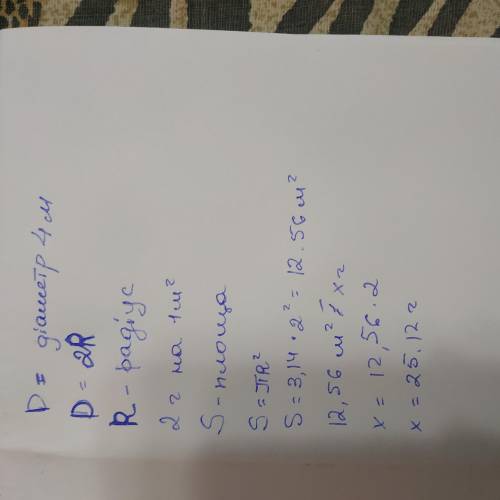 D = діаметр 4 м
D = 2R
R - радіус
2 г на 1 м²
S - площа
S = πR²
S = 3,14 · 2² = 12.56 м²
12,56 м² - x г
x = 12,56 · 2
x = 25.12 г